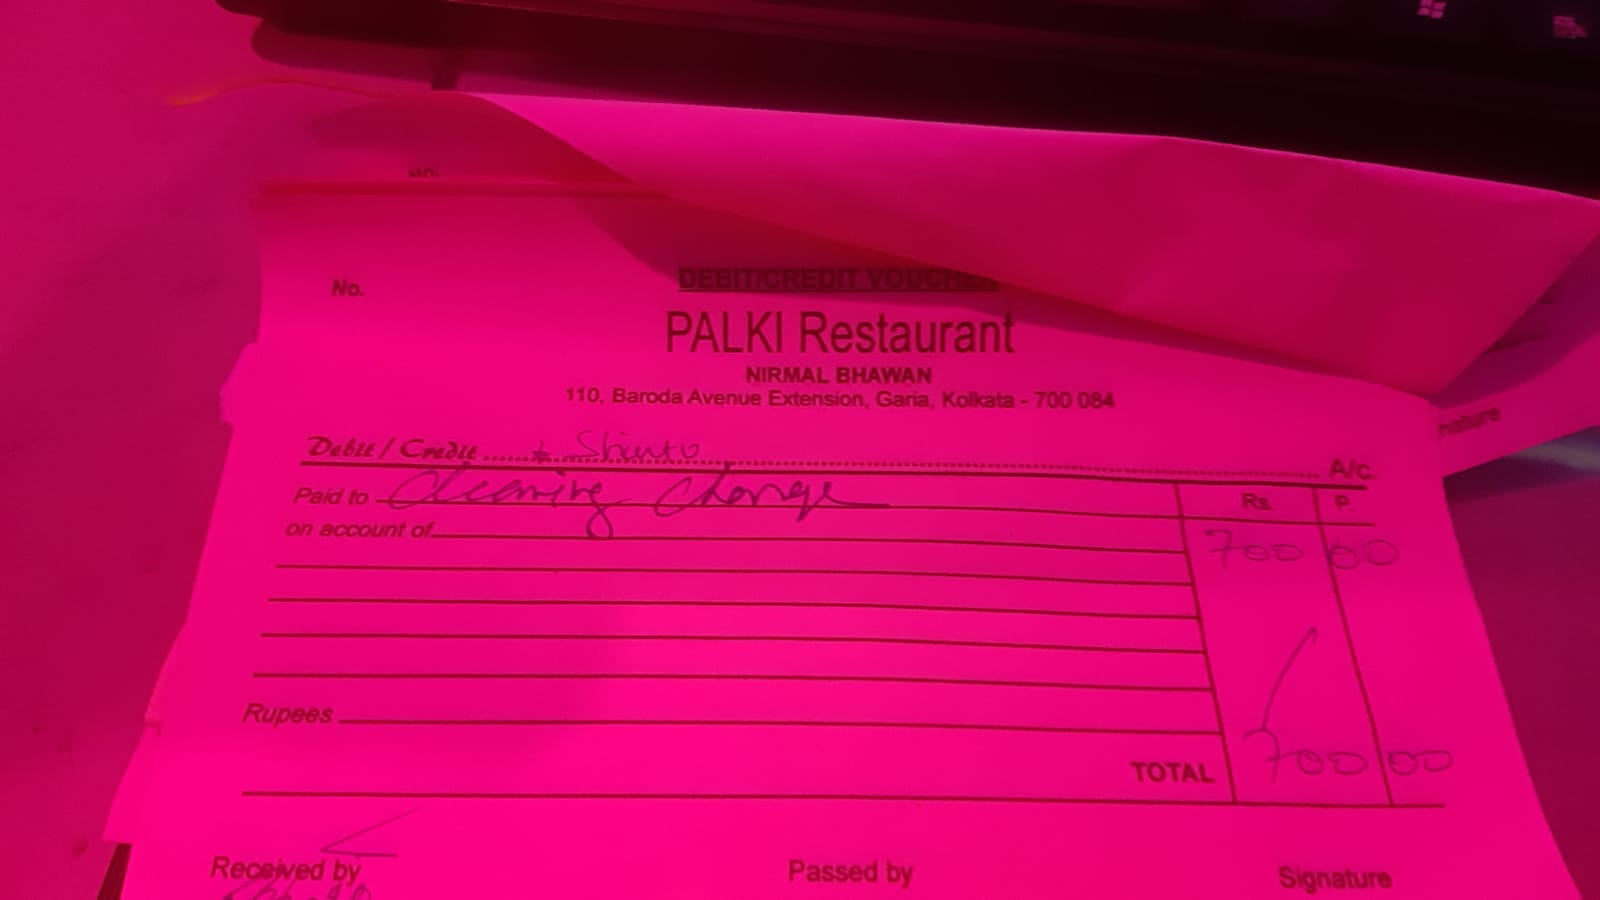 No.
DEBIT/CREDIT VOUCHER
PALKI Restaurant
NIRMAL BHAWAN
110, Baroda Avenue Extension, Garia, Kolkata - 700 084
Debit / Credit A/c.
Paid to Cleaning Charge Rs. P.
on account of 700 00
Rupees
TOTAL 700 00
Received by Passed by Signature
nature